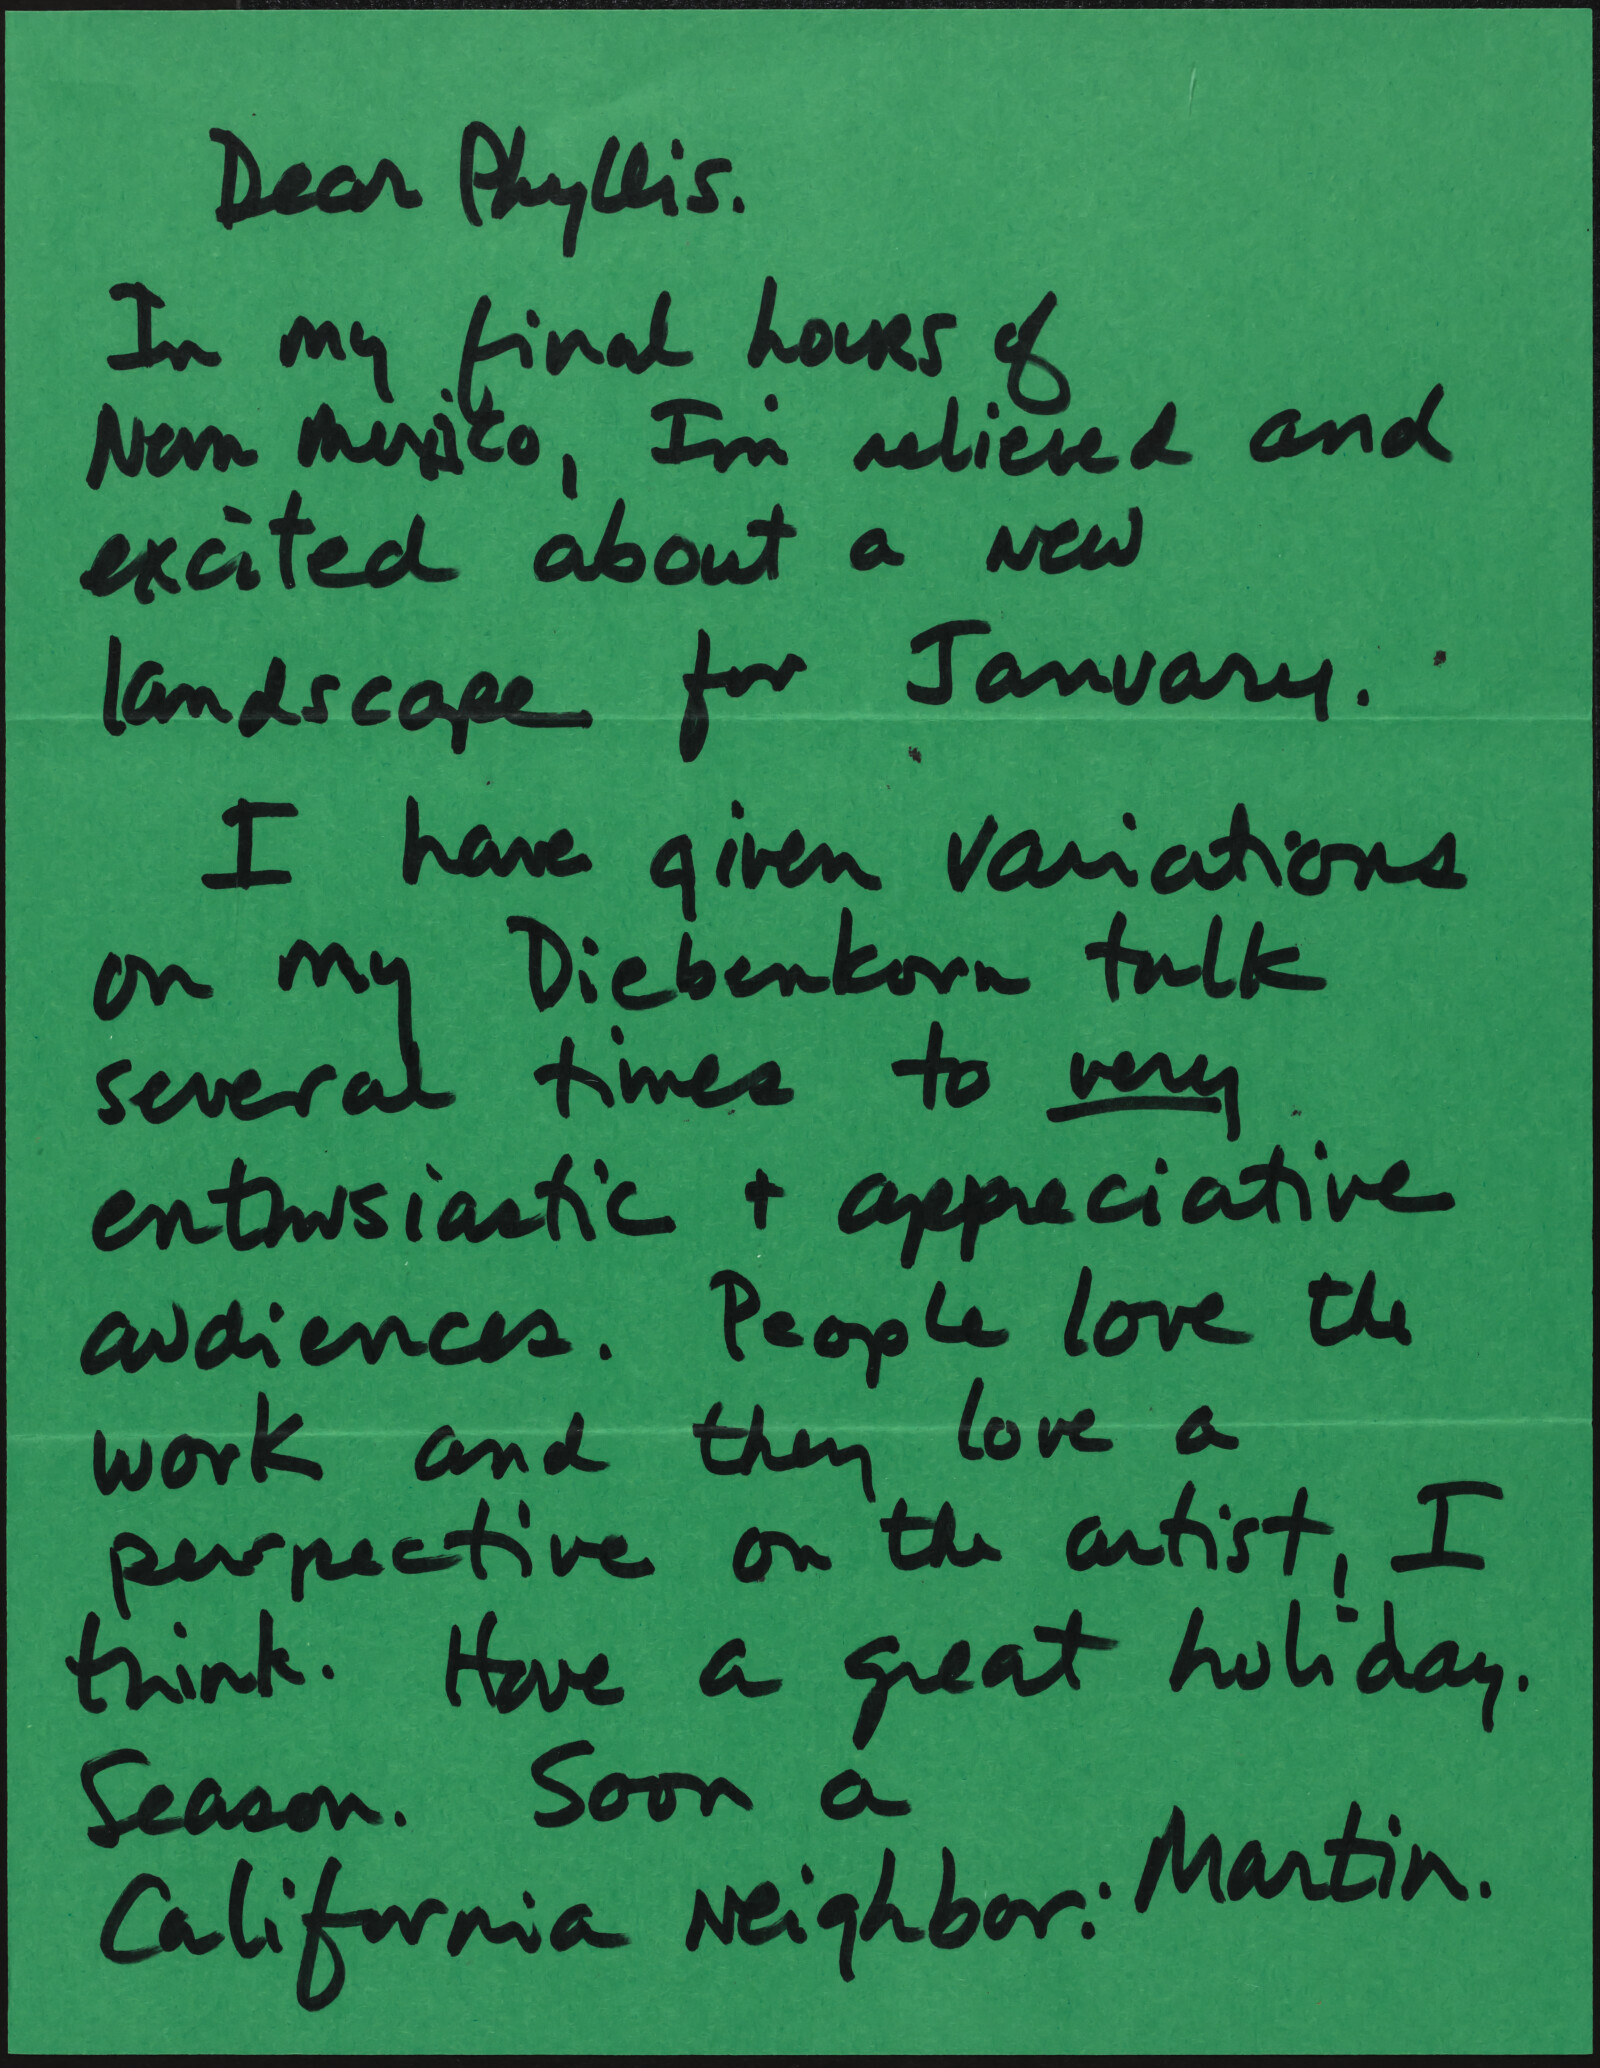 Dear Phyllis.
In my final hours of
New Mexico, I'm relieved and
excited about a new
landscape for January.
I have given variations
on my Diebenkorn talk
several times to very
enthusiastic + appreciative
audiences. People love the
work and they love a
perspective on the artist, I
think. Have a great holiday.
Season. Soon a
California Neighbor: Martin.